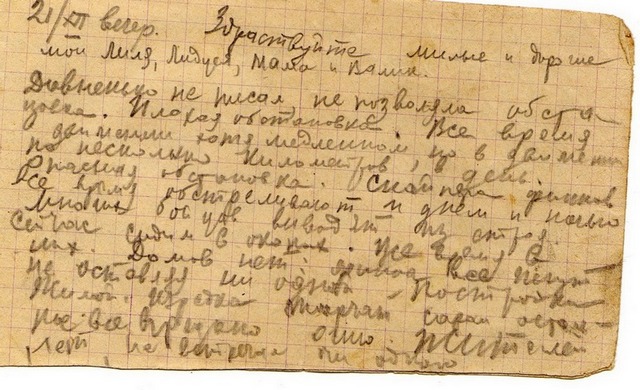 21/XII вечер. Здраствуйте милые и дорогие
мои Лиля, Лидуся, мама и Валик.
Давненько не писал, не позволяла обста-
новка. Плохая обстановка. Все время
в движении хотя медленном, но в движении
по несколько километров, в день.
Опасная обстановка. Снайпера финнов
все время обстреливают и днем и ночью
многих бойцов выводят из строя.
Сейчас сидим в окопах. Все время в
них. Домов нет. финны все жгут
не оставляя ни одной постройки
жилой. Изредка торчат сараи
все время одно. Жителей
не встречал ни одного